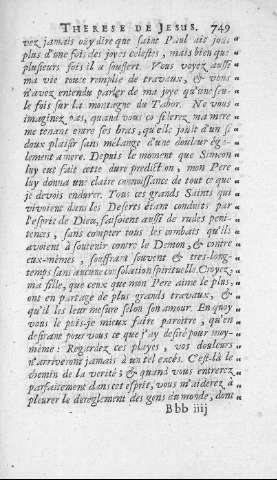 THERESE DE JESUS. 749
vez jamais ouy dire que saint Paul ait joüi
plus d'une fois des joyes celestes, mais bien que
plusieurs fois il a souffert. Vous voyez aussi
ma vie toute remplie de travaux, & vous
n'avez entendu parler de ma joye qu'une seu-
le fois sur la montagne du Tabor. Ne vous
imaginez pas, quand vous considerez ma mere
me tenant entre ses bras, qu'elle joüist d'un si
doux plaisir sans mélange d'une douleur éga-
lement amere. Depuis le moment que Simeon
luy eut fait cette dure prediction, mon Pere
luy donna une claire connoissance de tout ce que
je devois endurer. Tous ces grands Saints qui
vivoient dans les Deserts étant conduits par
l'esprit de Dieu, faisoient aussi de rudes peni-
tences, sans compter tous les combats qu'ils
avoient à soutenir contre le Demon, & contre
eux-mêmes, souffrant souvent & tres-long-
temps sans aucune consolation spirituelle. Croyez,
ma fille, que ceux que mon Pere aime le plus,
ont en partage de plus grands travaux, &
qu'il les leur mesure selon son amour. En quoy
vous le puis-je mieux faire paroitre, qu'en
desirant pour vous ce que j'ay desiré pour moy-
même: Regardez ces playes, vos douleurs
n'arriveront jamais à un tel excés. C'est-là le
chemin de la verité; & quand vous entrerez
parfaitement dans cet esprit, vous m'aiderez à
pleurer le dereglement des gens du monde, dont
Bbb iiij